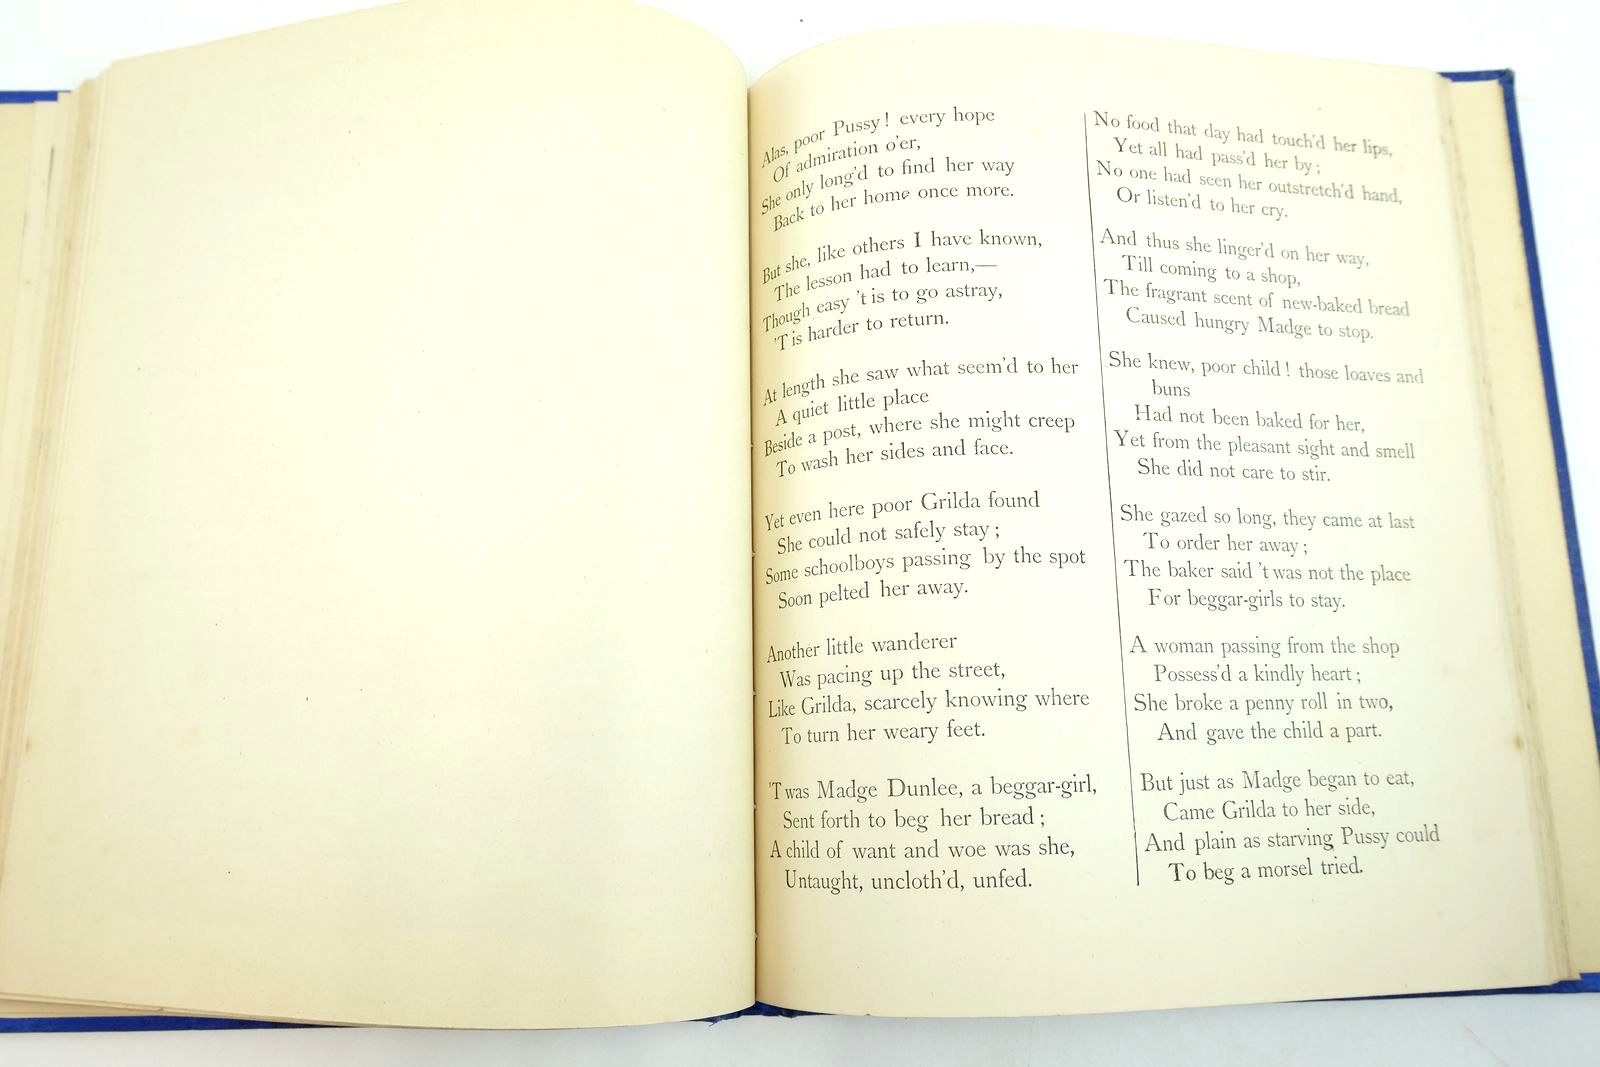 Alas, poor Pussy! every hope
Of admiration o'er,
She only long'd to find her way
Back to her home once more.
But she, like others I have known,
The lesson had to learn,—
Though easy 't is to go astray,
'T is harder to return.
At length she saw what seem'd to her
A quiet little place
Beside a post, where she might creep
To wash her sides and face.
Yet even here poor Grilda found
She could not safely stay;
Some schoolboys passing by the spot
Soon pelted her away.
Another little wanderer
Was pacing up the street,
Like Grilda, scarcely knowing where
To turn her weary feet.
'T was Madge Dunlee, a beggar-girl,
Sent forth to beg her bread;
A child of want and woe was she,
Untaught, uncloth'd, unfed.
No food that day had touch'd her lips,
Yet all had pass'd her by;
No one had seen her outstretch'd hand,
Or listen'd to her cry.
And thus she linger'd on her way,
Till coming to a shop,
The fragrant scent of new-baked bread
Caused hungry Madge to stop.
She knew, poor child! those loaves and
buns
Had not been baked for her,
Yet from the pleasant sight and smell
She did not care to stir.
She gazed so long, they came at last
To order her away;
The baker said 't was not the place
For beggar-girls to stay.
A woman passing from the shop
Possess'd a kindly heart;
She broke a penny roll in two,
And gave the child a part.
But just as Madge began to eat,
Came Grilda to her side,
And plain as starving Pussy could
To beg a morsel tried.